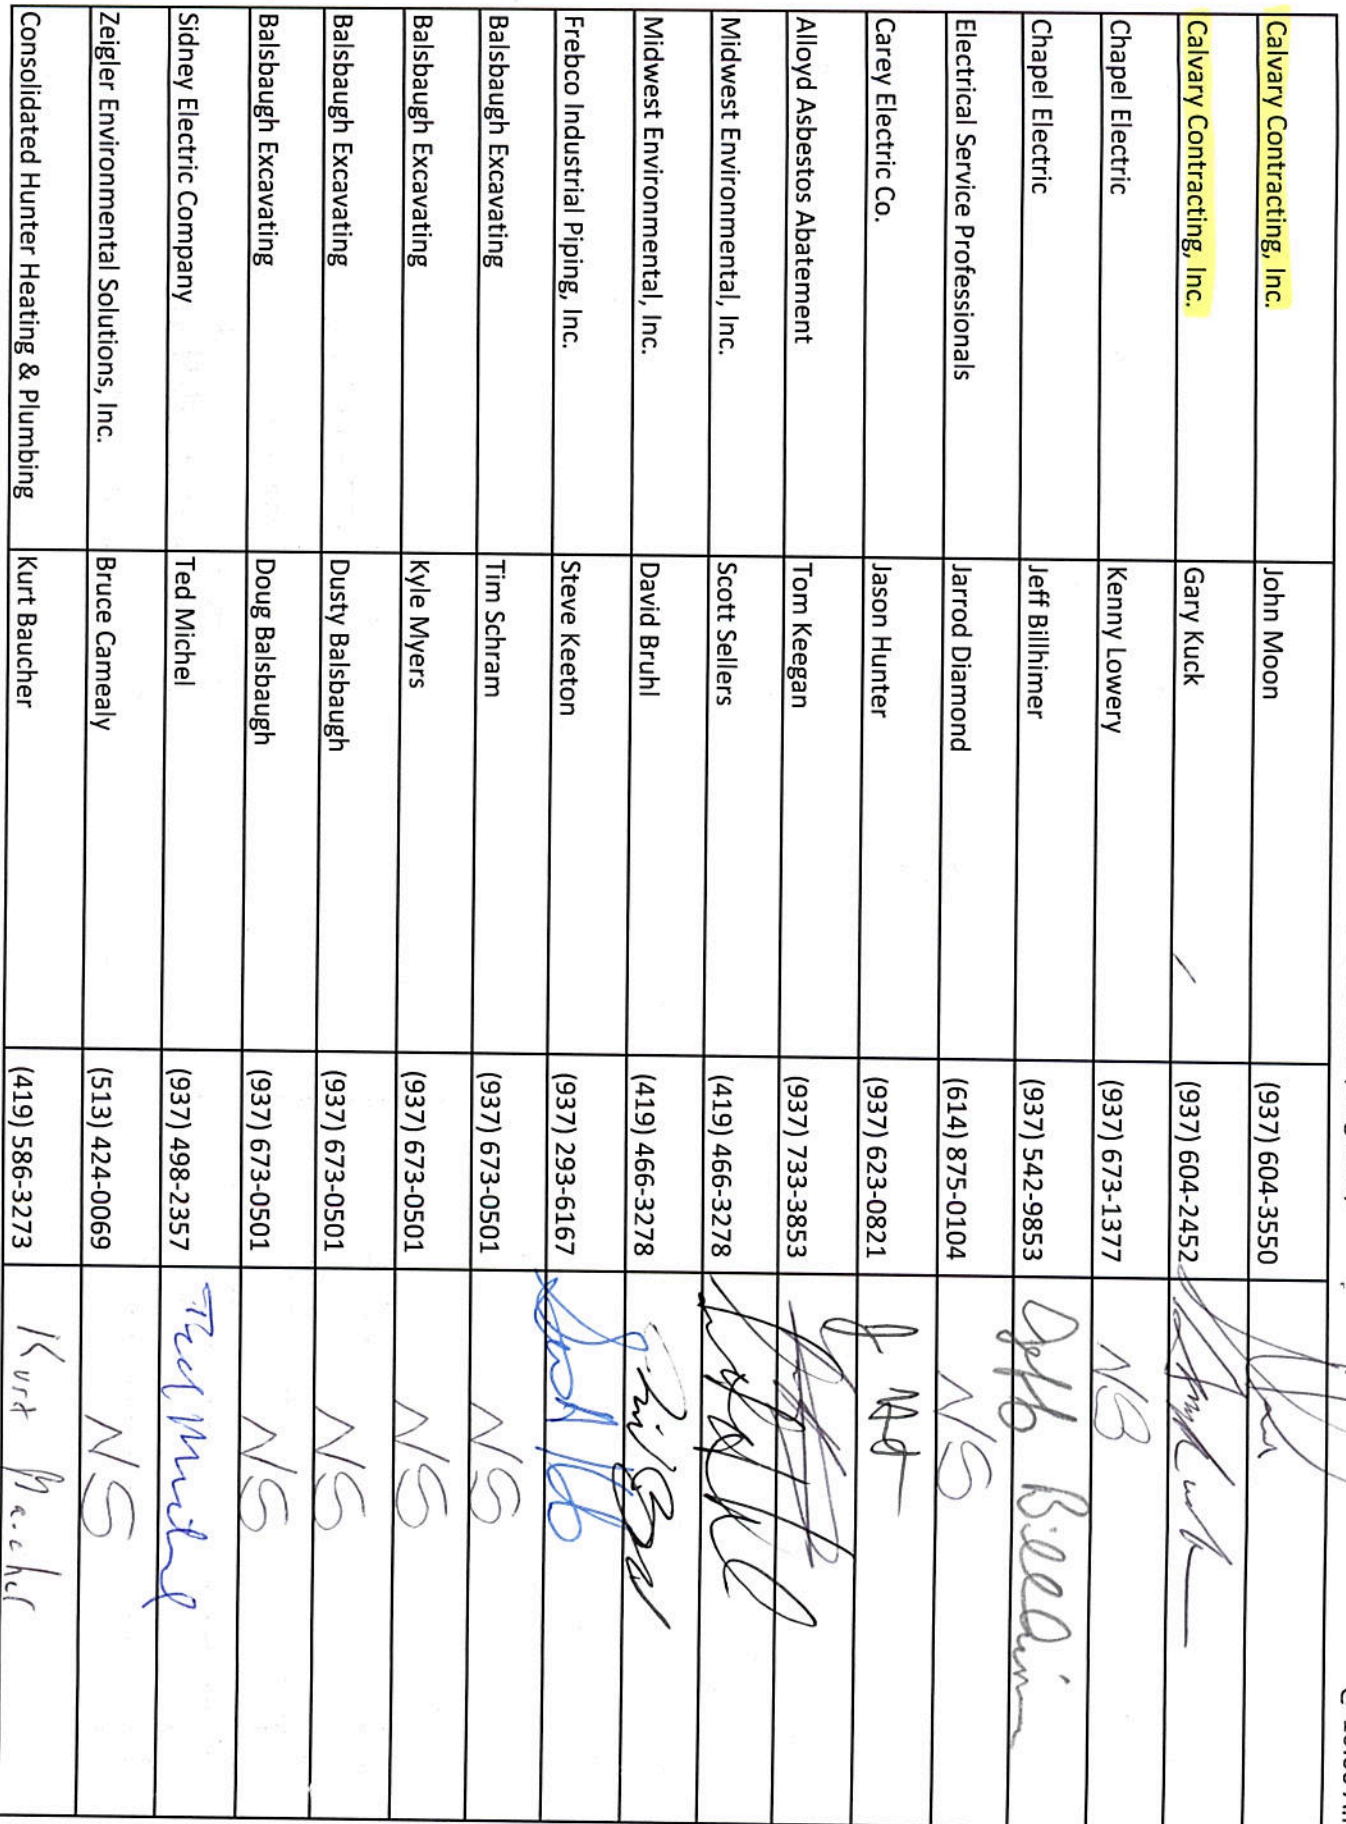 Calvary Contracting, Inc. John Moon (937) 604-3550
Calvary Contracting, Inc. Gary Kuck (937) 604-2452
Chapel Electric Kenny Lowery (937) 673-1377 NS
Chapel Electric Jeff Billhimer (937) 542-9853
Electrical Service Professionals Jarrod Diamond (614) 875-0104 NS
Carey Electric Co. Jason Hunter (937) 623-0821
Alloyd Asbestos Abatement Tom Keegan (937) 733-3853
Midwest Environmental, Inc. Scott Sellers (419) 466-3278
Midwest Environmental, Inc. David Bruhl (419) 466-3278
Frebco Industrial Piping, Inc. Steve Keeton (937) 293-6167
Balsbaugh Excavating Tim Schram (937) 673-0501 NS
Balsbaugh Excavating Kyle Myers (937) 673-0501 NS
Balsbaugh Excavating Dusty Balsbaugh (937) 673-0501 NS
Balsbaugh Excavating Doug Balsbaugh (937) 673-0501 NS
Sidney Electric Company Ted Michel (937) 498-2357 Ted Michel
Zeigler Environmental Solutions, Inc. Bruce Camealy (513) 424-0069 NS
Consolidated Hunter Heating & Plumbing Kurt Baucher (419) 586-3273 Kurt